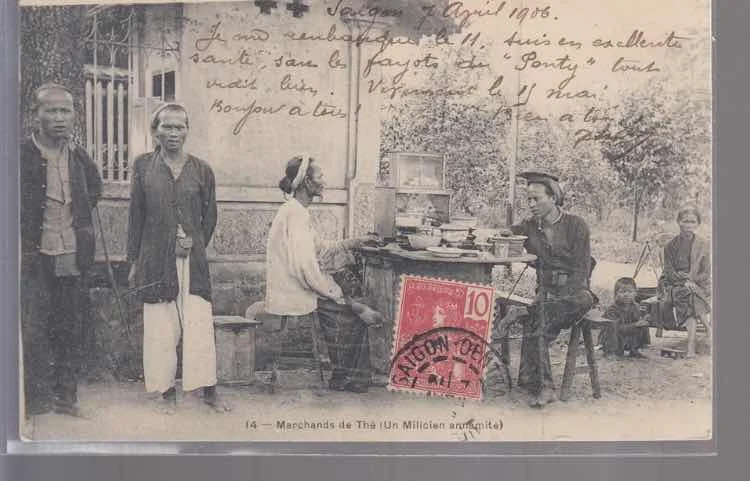 Saigon 7 April 1906.
Je me rembarque le 11. Suis en excellente
santé, sau les fayots du "Ponty" tout
vadit bien. Vivement le 15 mai
Bonjour à tous! Bien à toi
10
SAIGON
14 — Marchands de Thé (Un Milicien annamite)